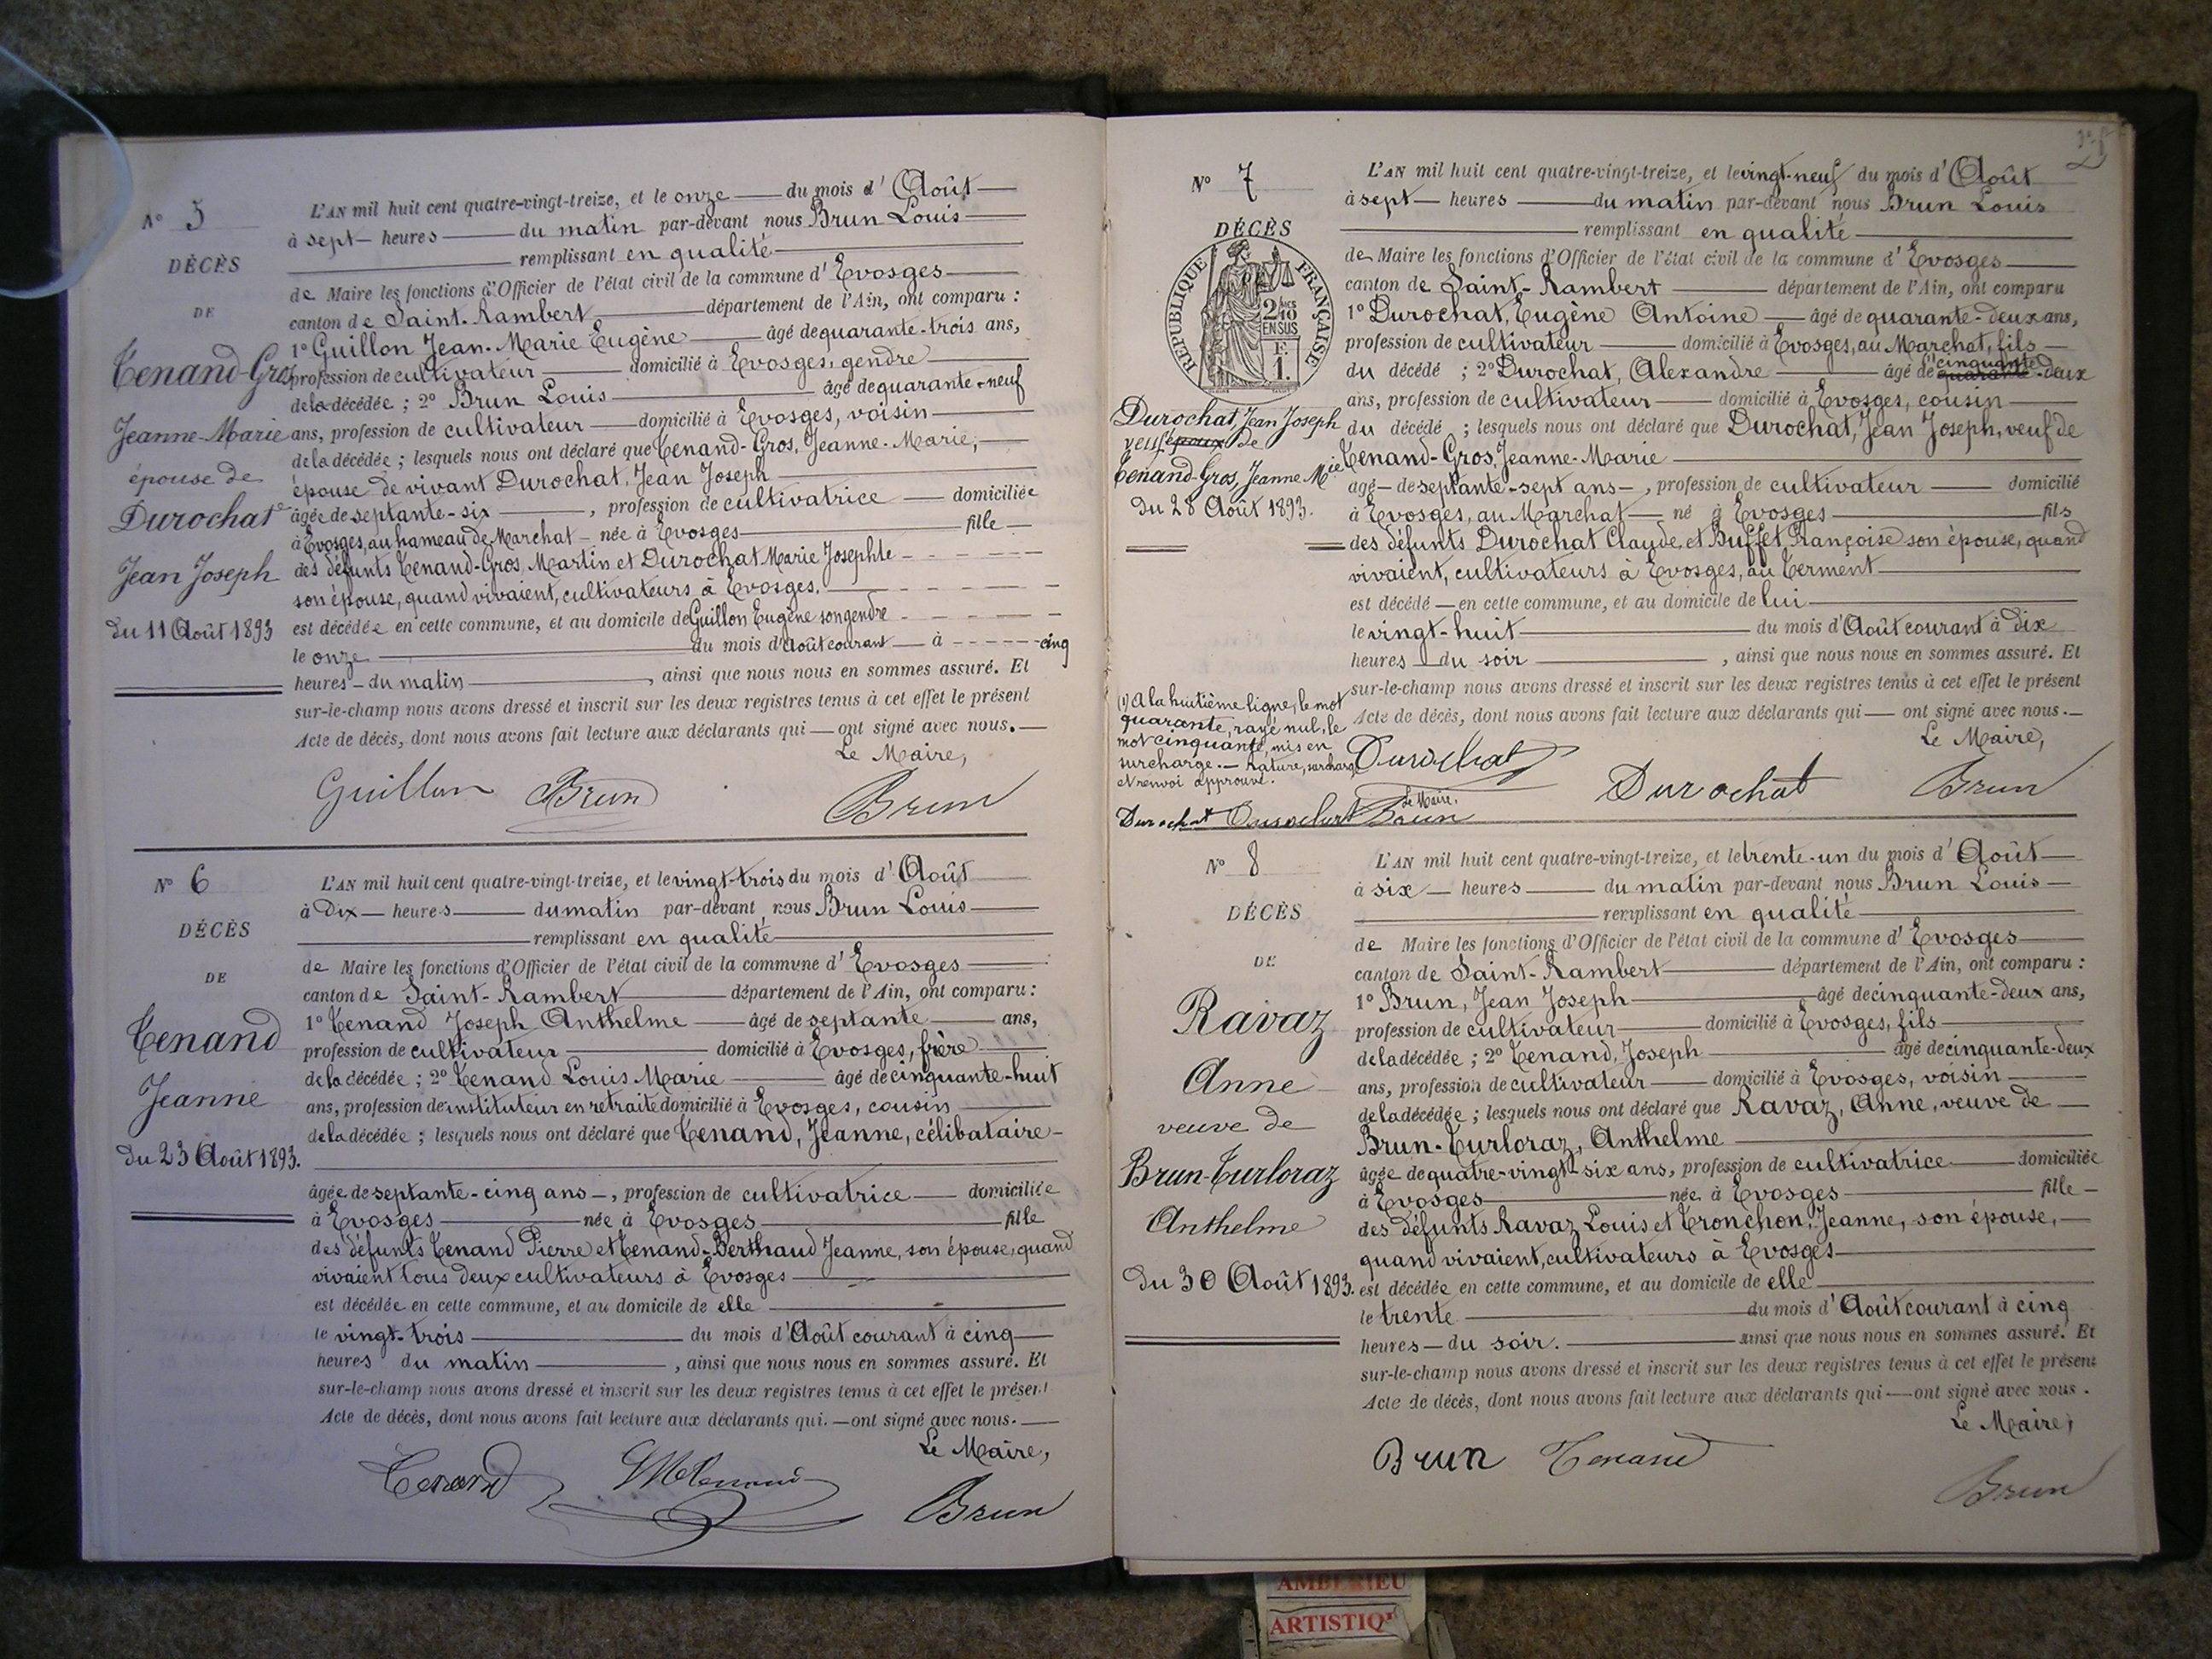 N° 5
DÉCÈS
DE
Tenand-Gros
Jeanne-Marie
épouse de
Durochat
Jean Joseph
du 11 Août 1893
L'AN mil huit cent quatre-vingt-treize, et le onze du mois d'Août
à sept heures du matin par-devant nous Brun Louis
remplissant en qualité
de Maire les fonctions d'Officier de l'état civil de la commune d'Evosges
canton de Saint-Rambert département de l'Ain, ont comparu :
1° Guillon Jean-Marie Eugène âgé de quarante-trois ans,
profession de cultivateur domicilié à Evosges, gendre
de la décédée ; 2° Brun Louis âgé de quarante-neuf
ans, profession de cultivateur domicilié à Evosges, voisin
de la décédée ; lesquels nous ont déclaré que Tenand-Gros, Jeanne-Marie,
épouse de vivant Durochat, Jean Joseph
âgée de septante-six , profession de cultivatrice domiciliée
à Evosges, au hameau de Marchat née à Evosges fille
des défunts Tenand-Gros, Martin et Durochat Marie Josephte
son épouse, quand vivaient, cultivateurs à Evosges.
est décédée en cette commune, et au domicile de Guillon Eugène son gendre
le onze du mois d'Août courant à cinq
heures du matin , ainsi que nous nous en sommes assuré. Et
sur-le-champ nous avons dressé et inscrit sur les deux registres tenus à cet effet le présent
Acte de décès, dont nous avons fait lecture aux déclarants qui ont signé avec nous.
Le Maire,
Guillon Brun Brun
N° 6
DÉCÈS
DE
Tenand
Jeanne
du 23 Août 1893.
L'AN mil huit cent quatre-vingt-treize, et le vingt-trois du mois d'Août
à Dix heures du matin par-devant nous Brun Louis
remplissant en qualité
de Maire les fonctions d'Officier de l'état civil de la commune d'Evosges
canton de Saint-Rambert département de l'Ain, ont comparu :
1° Tenand Joseph Anthelme âgé de septante ans,
profession de cultivateur domicilié à Evosges, frère
de la décédée ; 2° Tenand Louis Marie âgé de cinquante-huit
ans, profession de instituteur en retraite domicilié à Evosges, cousin
de la décédée ; lesquels nous ont déclaré que Tenand, Jeanne, célibataire
âgée de septante-cinq ans , profession de cultivatrice domiciliée
à Evosges née à Evosges fille
des défunts Tenand Pierre et Tenand-Berthaud Jeanne, son épouse, quand
vivaient tous deux cultivateurs à Evosges
est décédée en cette commune, et au domicile de elle
le vingt-trois du mois d'Août courant à cinq
heures du matin , ainsi que nous nous en sommes assuré. Et
sur-le-champ nous avons dressé et inscrit sur les deux registres tenus à cet effet le présent
Acte de décès, dont nous avons fait lecture aux déclarants qui. ont signé avec nous.
Le Maire,
Tenand Brun
N° 7
DÉCÈS
RÉPUBLIQUE FRANÇAISE
2/10 EN SUS
F. 1.
Durochat, Jean Joseph
veuf époux de
Tenand-Gros, Jeanne Mie
du 28 Août 1893.
L'AN mil huit cent quatre-vingt-treize, et le vingt-neuf du mois d'Août
à sept heures du matin par-devant nous Brun Louis
remplissant en qualité
de Maire les fonctions d'Officier de l'état civil de la commune d'Evosges
canton de Saint-Rambert département de l'Ain, ont comparu
1° Durochat, Eugène Antoine âgé de quarante-deux ans,
profession de cultivateur domicilié à Evosges, au Marchat, fils
du décédé ; 2° Durochat, Alexandre âgé de quarante cinquante-deux
ans, profession de cultivateur domicilié à Evosges, cousin
du décédé ; lesquels nous ont déclaré que Durochat, Jean Joseph, veuf de
Tenand-Gros, Jeanne-Marie
âgé de septante-sept ans , profession de cultivateur domicilié
à Evosges, au Marchat né à Evosges fils
des défunts Durochat Claude, et Buffet Françoise son épouse, quand
vivaient, cultivateurs à Evosges, au Terment
est décédé en cette commune, et au domicile de lui
le vingt-huit du mois d'Août courant à dix
heures du soir , ainsi que nous nous en sommes assuré. Et
sur-le-champ nous avons dressé et inscrit sur les deux registres tenus à cet effet le présent
Acte de décès, dont nous avons fait lecture aux déclarants qui ont signé avec nous.
Le Maire,
(1) A la huitième ligne, le mot
quarante, rayé nul, le
mot cinquante, mis en
surcharge. Rature, surcharge
et renvoi approuvé.
Durochat Durochat Brun
Le Maire,
Durochat Durochat Brun
N° 8
DÉCÈS
DE
Ravaz
Anne
veuve de
Brun-Turloraz
Anthelme
du 30 Août 1893.
L'AN mil huit cent quatre-vingt-treize, et le trente-un du mois d'Août
à six heures du matin par-devant nous Brun Louis
remplissant en qualité
de Maire les fonctions d'Officier de l'état civil de la commune d'Evosges
canton de Saint-Rambert département de l'Ain, ont comparu :
1° Brun, Jean Joseph âgé de cinquante-deux ans,
profession de cultivateur domicilié à Evosges, fils
de la décédée ; 2° Tenand, Joseph âgé de cinquante-deux
ans, profession de cultivateur domicilié à Evosges, voisin
de la décédée ; lesquels nous ont déclaré que Ravaz, Anne, veuve de
Brun-Turloraz, Anthelme
âgée de quatre-vingt-six ans, profession de cultivatrice domiciliée
à Evosges née à Evosges fille
des défunts Ravaz Louis et Tronchon, Jeanne, son épouse,
quand vivaient, cultivateurs à Evosges
est décédée en cette commune, et au domicile de elle
le trente du mois d'Août courant à cinq
heures du soir. ainsi que nous nous en sommes assuré. Et
sur-le-champ nous avons dressé et inscrit sur les deux registres tenus à cet effet le présent
Acte de décès, dont nous avons fait lecture aux déclarants qui ont signé avec nous.
Le Maire,
Brun Tenand
Brun
AMBERIEU
ARTISTIQ